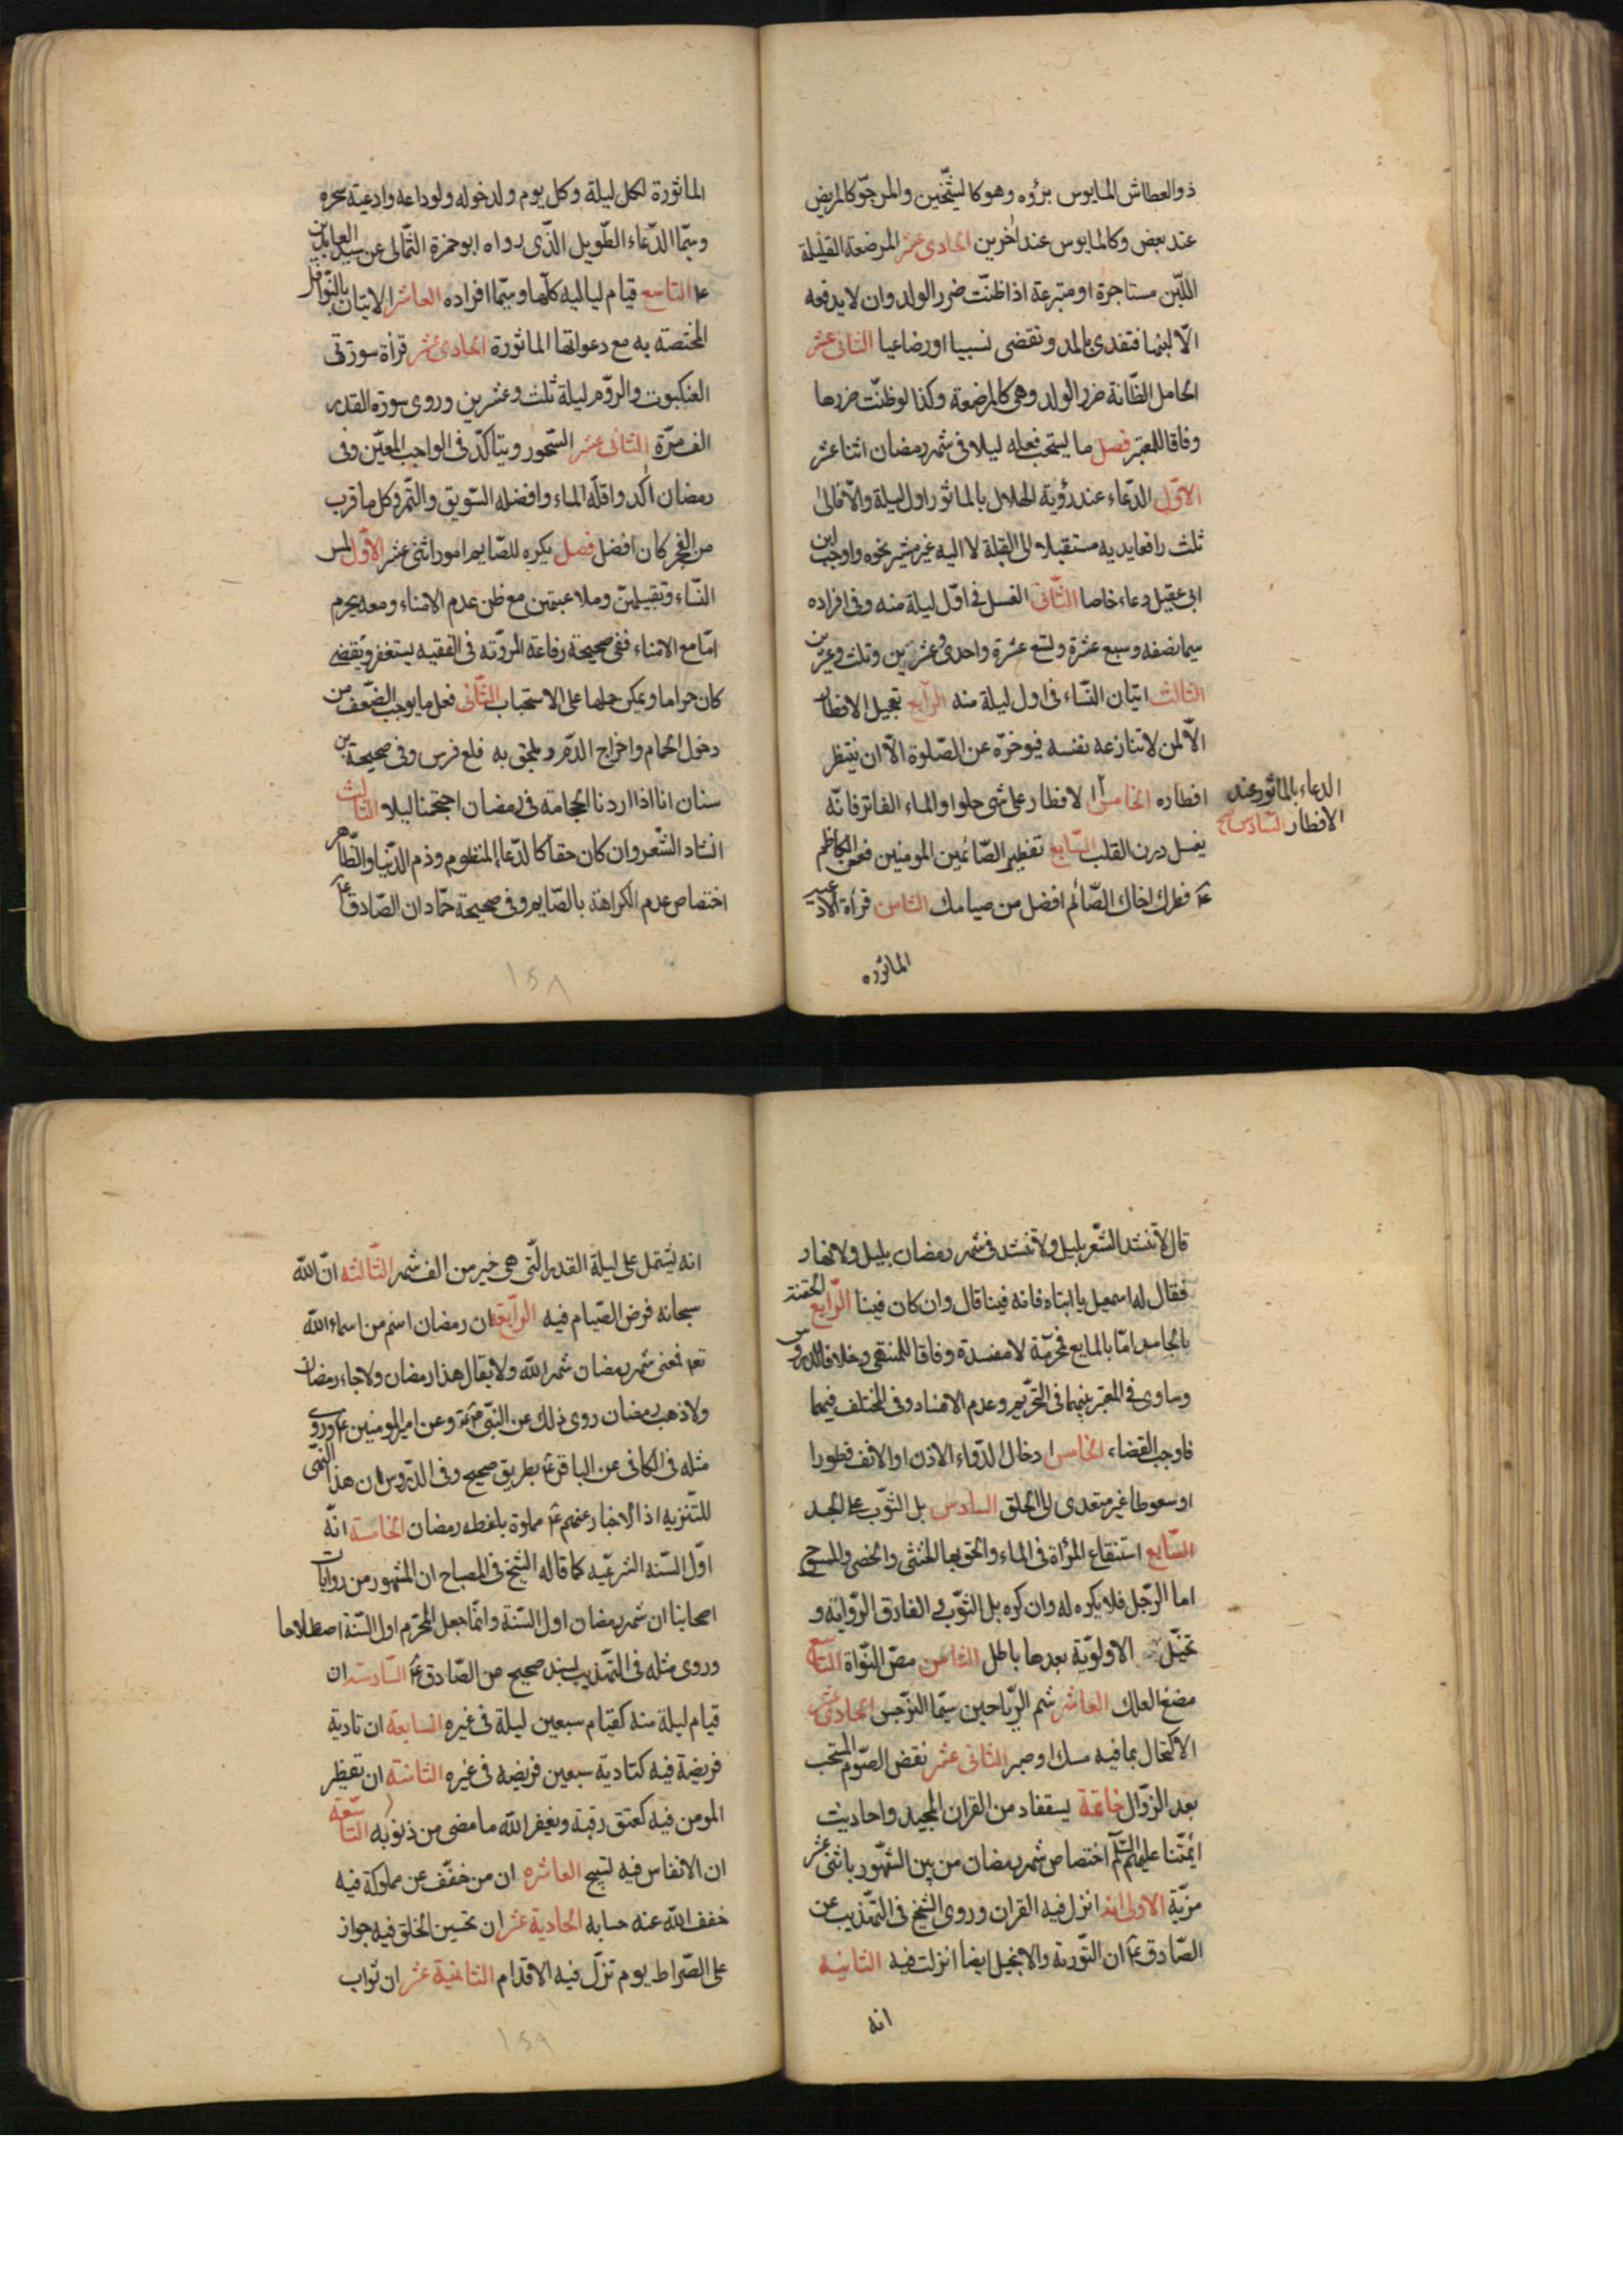 ذو العطاش المايوس برؤه وهو كالشيخين والمرجو كالمريض
عند بعض وكالمايوس عند اخرين الحادى عشر المرضعة القليلة
اللبن مستاجرة او متبرعة اذا ظنت ضرر الولد وان لا يدفعه
الا لبنها فتفدى بالمد وتقضى نسبيا او رضاعيا الثانى عشر
الحامل الظانة ضرر الولد وهى كالمرضعة وكذا لو ظنت ضررها
وفاقا للمعتبر فصل ما يستحب فعله ليلا فى شهر رمضان اثنا عشر
الاول الدعاء عند رؤية الهلال بالماثور اول ليلة والا فالى
ثلث رافعا يديه مستقبلا الى القبلة لا اليه غير مشير نحوه واوجب ابن
ابى عقيل دعاء خاصا الثانى الغسل فى اول ليلة منه وفى افراده
سيما نصفه وسبع عشرة وتسع عشرة واحدى وعشرين وثلث وعشرين
الثالث اتيان النساء فى اول ليلة منه الرابع تعجيل الافطار
الا لمن لا تنازعه نفسه فيوخره عن الصلوة الا ان ينتظر
افطاره الخامس الافطار على شى حلو او الماء الفاتر فانه
الدعاء بالماثور عند
الافطار السادس صح
يغسل درن القلب السابع تفطير الصائمين المومنين فعن الكاظم
ع فطرك اخاك الصائم افضل من صيامك الثامن قرأة الادعية
الماثوره
الماثورة لكل ليلة وكل يوم ولدخوله ولوداعه وادعية سحره
وسيما الدعاء الطويل الذى رواه ابو حمزة الثمالى عن سيد العابدين
ع التاسع قيام لياليه كلها وسيما افراده العاشر الاتيان بالنوافل
المختصة به مع دعواتها الماثورة الحادى عشر قرأة سورتى
العنكبوت والروم ليلة ثلث وعشرين وروى سورة القدر
الف مرة الثانى عشر السحور ويتاكد فى الواجب المعين وفى
رمضان اكد واقله الماء وافضله السويق والتمر وكل ما قرب
من الفجر كان افضل فصل يكره للصايم امور اثنى عشر الاول لمس
النساء وتقبيلهن وملاعبتهن مع ظن عدم الامناء ومعه يحرم
اما مع الامناء ففى صحيحة رفاعة المروية فى الفقيه يستغفر ويقضى
كان حراما ويمكن حملها على الاستحباب الثانى فعل ما يوجب الضعف من
دخول الحمام واخراج الدم ويلحق به قلع ضرس وفى صحيحة بن
سنان انا اذا اردنا الحجامة فى رمضان احتجمنا ليلا الثالث
انشاد الشعر وان كان حقا كالدعا المنظوم وذم الدنيا والظاهر
اختصاص عدم الكراهة بالصايم وفى صحيحة حماد ان الصادق ع
١٥٨
قال لا تنشد الشعر بليل ولا تنشد فى شهر رمضان بليل ولا نهار
فقال له اسمعيل يا ابتاه فانه فينا قال وان كان فينا الرابع الحقنة
بالجامد اما بالمايع فمحرمة لا مفسدة وفاقا للمنتهى وخلافا للدروس
وساوى فى المعتبر بينهما فى التحريم وعدم الافساد وفى المختلف فيهما
فاوجب القضاء الخامس ادخال الدواء الاذن او الانف قطورا
او سعوطا غير متعدى الى الحلق السادس بل الثوب على الجسد
السابع استنقاع المرأة فى الماء والحق بها الخنثى والخصى والممسوح
اما الرجل فلا يكره له وان كره بل الثوب والفارق الرواية و
تخيل الاولوية بعدها باطل الثامن مص النواة التاسع
مضغ العلك العاشر شم الرياحين سيما النرجس الحادى عشر
الاكتحال بما فيه مسك او صبر الثانى عشر نقض الصوم المستحب
بعد الزوال خاتمة يستفاد من القران المجيد واحاديث
ائمتنا عليهم السلم اختصاص شهر رمضان من بين الشهور باثنى عشر
مزية الاولى انه انزل فيه القران وروى الشيخ فى التهذيب عن
الصادق ع ان التورية والانجيل ايضا انزلت فيه الثانيه
انه
انه يشتمل على ليلة القدر التى هى خير من الف شهر الثالثه ان الله
سبحانه فرض الصيام فيه الرابعة ان رمضان اسم من اسماء الله
تعه فمعنى شهر رمضان شهر الله ولا يقال هذا رمضان ولا جاء رمضان
ولا ذهب رمضان روى ذلك عن النبى وعن امير المومنين ع وروى
مثله فى الكافى عن الباقر ع بطريق صحيح وفى الدروس ان هذا النهى
للتنزيه اذ الاخبار عنهم ع مملوة بلفظه رمضان الخامسة انه
اول السنه الشرعيه كما قاله الشيخ فى المصباح ان المشهور من روايات
اصحابنا ان شهر رمضان اول السنة وانما جعل المحرم اول السنة اصطلاحا
وروى مثله فى التهذيب بسند صحيح عن الصادق ع السادسة ان
قيام ليلة منه كقيام سبعين ليلة فى غيره السابعة ان تادية
فريضة فيه كتادية سبعين فريضه فى غيره الثامنة ان تفطير
المومن فيه كعتق رقبة ويغفر الله ما مضى من ذنوبه التاسعة
ان الانفاس فيه تسبيح العاشره ان من خفف عن مملوكه فيه
خفف الله عنه حسابه الحادية عشر ان تحسين الخلق فيه جواز
على الصراط يوم تزل فيه الاقدام الثانية عشر ان ثواب
١٥٩